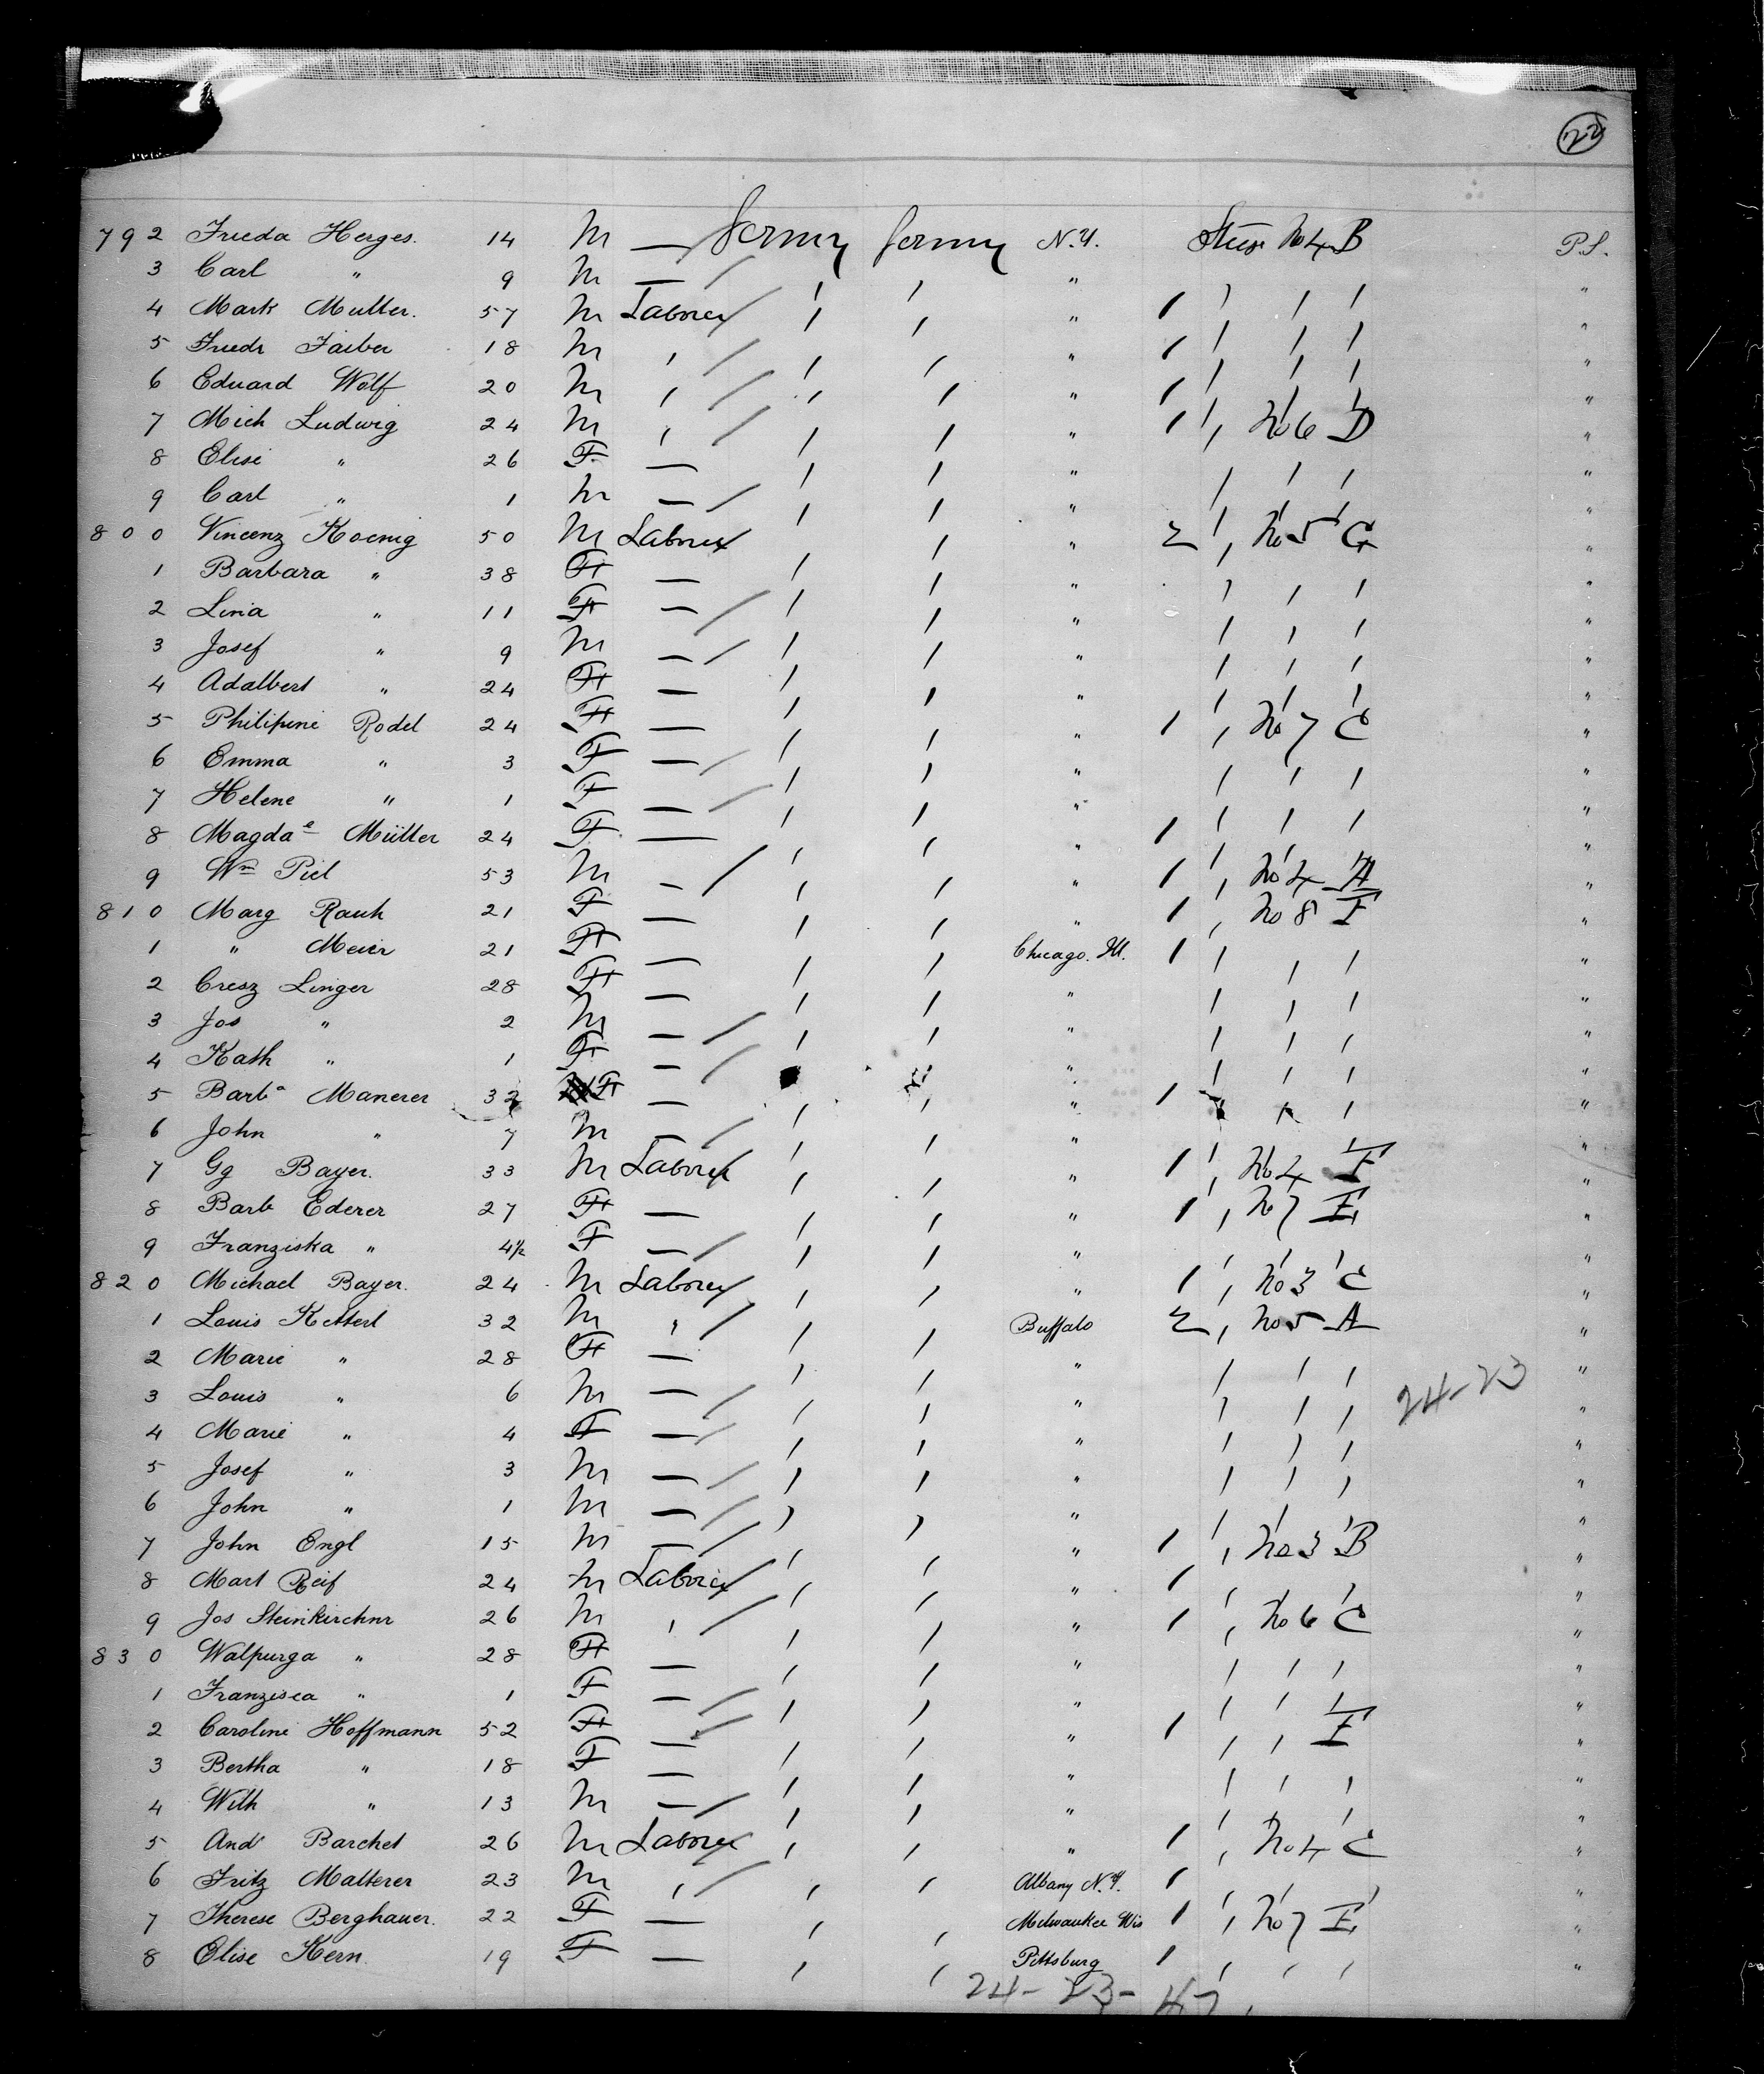 22
792 Frieda Herges. 14 M — Germny Germny N.Y. Steer No 4 B P.S.
3 Carl " 9 M — / ′ ′ " ′ ′ ′ "
4 Mark Muller. 57 M Laborer / ′ ′ " 1 ′ ′ ′ "
5 Friedr Faiber 18 M ′ / ′ ′ " 1 ′ ′ ′ "
6 Eduard Wolf 20 M ′ / ′ ′ " 1 ′ ′ ′ "
7 Mich Ludwig 24 M ′ / ′ ′ " 1 ′ No 6 D "
8 Elise " 26 F — ′ ′ " ′ ′ ′ "
9 Carl " 1 M — / ′ ′ " ′ ′ ′ "
800 Vincenz Koenig 50 M Laborer ′ ′ " 2 ′ No 5 G "
1 Barbara " 38 F — ′ ′ " ′ ′ ′ "
2 Lina " 11 F — / ′ ′ " ′ ′ ′ "
3 Josef " 9 M — / ′ ′ " ′ ′ ′ "
4 Adalbert " 24 F — ′ ′ " ′ ′ ′ "
5 Philipine Rodel 24 F — ′ ′ " 1 ′ No 7 C "
6 Emma " 3 F — / ′ ′ " ′ ′ ′ "
7 Helene " 1 F — / ′ ′ " ′ ′ ′ "
8 Magdae Müller 24 F — ′ ′ " 1 ′ ′ ′ "
9 Wm Piel 53 M — / ′ ′ " 1 ′ No 4 A "
810 Marg Rauh 21 F — ′ ′ " 1 ′ No 8 F "
1 " Meier 21 F — ′ ′ Chicago. Ill. 1 ′ ′ ′ "
2 Cresz Linger 28 F — ′ ′ " ′ ′ ′ "
3 Jos " 2 M — / ′ ′ " ′ ′ ′ "
4 Kath " 1 F — / ′ ′ " ′ ′ ′ "
5 Barba Manerer 32 F — ′ ′ " 1 ′ ′ ′ "
6 John " 7 M — / ′ ′ " ′ ′ ′ "
7 Gg Bayer. 33 M Laborer ′ ′ " 1 ′ No 4 F "
8 Barb Ederer 27 F — ′ ′ " 1 ′ No 7 E "
9 Franziska " 4½ F — / ′ ′ " ′ ′ ′ "
820 Michael Bayer. 24 M Laborer / ′ ′ " 1 ′ No 3 C "
1 Louis Ketterl 32 M ′ / ′ ′ Buffalo 2 ′ No 5 A "
2 Marie " 28 F — ′ ′ " ′ ′ ′ "
3 Louis " 6 M — / ′ ′ " ′ ′ ′ 24-23 "
4 Marie " 4 F — / ′ ′ " ′ ′ ′ "
5 Josef " 3 M — / ′ ′ " ′ ′ ′ "
6 John " 1 M — / ′ ′ " ′ ′ ′ "
7 John Engl 15 M — / ′ ′ " 1 ′ No 3 B "
8 Mart Reif 24 M Laborer / ′ ′ " 1 ′ ′ ′ "
9 Jos Steinkirchnr 26 M ′ / ′ ′ " 1 ′ No 6 C "
830 Walpurga " 28 F — ′ ′ " ′ ′ ′ "
1 Franzisca " 1 F — / ′ ′ " ′ ′ ′ "
2 Caroline Hoffmann 52 F — / ′ ′ " 1 ′ ′ F "
3 Bertha " 18 F — ′ ′ " ′ ′ ′ "
4 Wilh " 13 M — / ′ ′ " ′ ′ ′ "
5 Andr Barchet 26 M Laborer / ′ ′ " 1 ′ No 4 C "
6 Fritz Malterer 23 M ′ / ′ ′ Albany N.Y. 1 ′ ′ ′ "
7 Therese Berghauer. 22 F — ′ ′ Milwaukee Wis 1 ′ No 7 E "
8 Elise Kern. 19 F — ′ ′ Pittsburg 1 ′ ′ ′ "
24-23-47